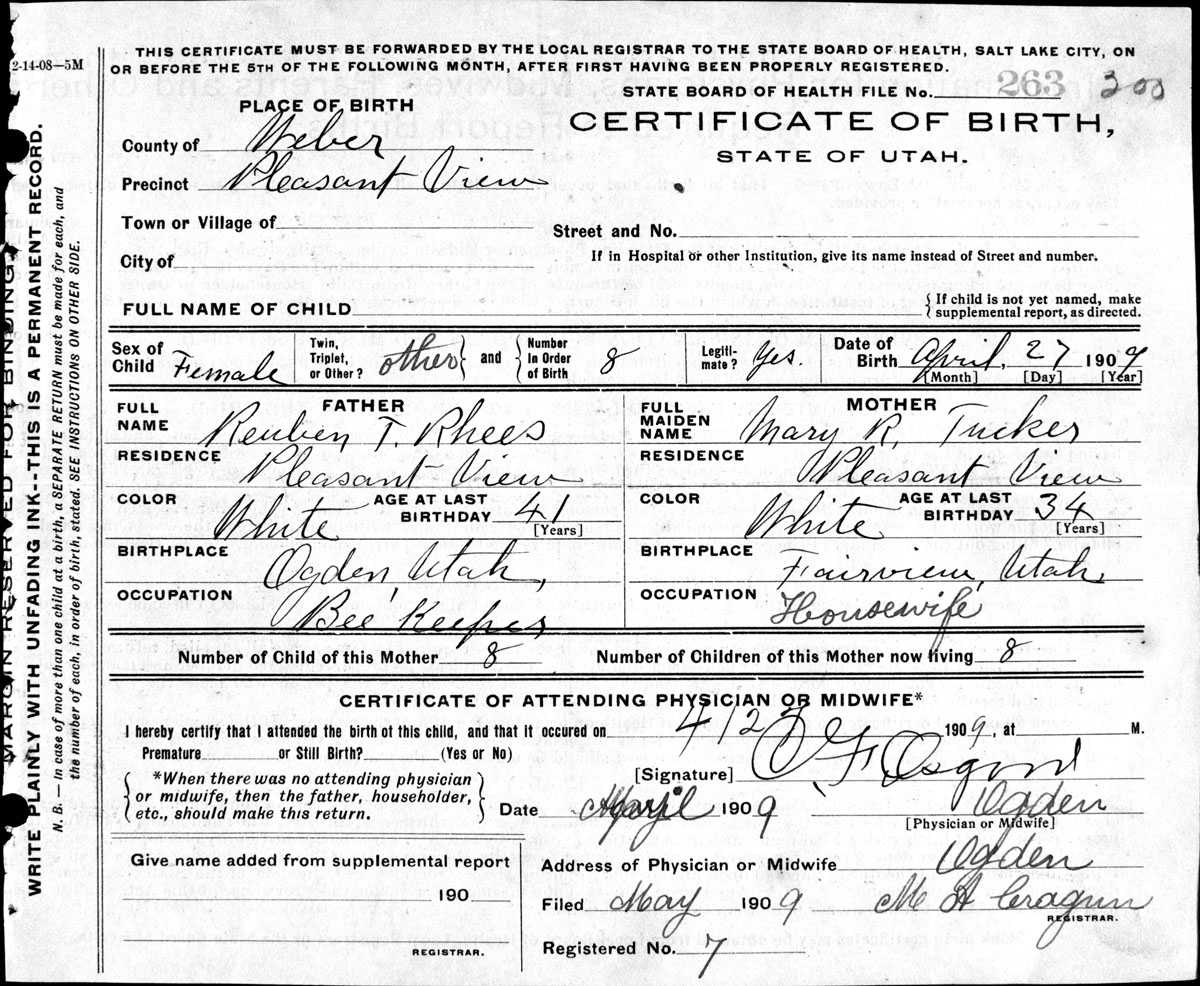 THIS CERTIFICATE MUST BE FORWARDED BY THE LOCAL REGISTRAR TO THE STATE BOARD OF HEALTH, SALT LAKE CITY, ON
2-14-08—5M
OR BEFORE THE 5TH OF THE FOLLOWING MONTH, AFTER FIRST HAVING BEEN PROPERLY REGISTERED.
STATE BOARD OF HEALTH FILE No. 263 300
PLACE OF BIRTH
CERTIFICATE OF BIRTH,
STATE OF UTAH.
County of Weber
Precinct Pleasant View
Town or Village of
Street and No.
City of
If in Hospital or other Institution, give its name instead of Street and number.
FULL NAME OF CHILD
{If child is not yet named, make
supplemental report, as directed.
Sex of Child Female
Twin, Triplet, or Other? other} and {Number In Order of Birth 8
Legiti-mate? Yes.
Date of Birth April, 27 1909
[Month] [Day] [Year]
FATHER
FULL NAME Reuben T. Rhees
MOTHER
FULL MAIDEN NAME Mary R. Tucker
RESIDENCE Pleasant View
RESIDENCE Pleasant View
COLOR White AGE AT LAST BIRTHDAY 41 [Years]
COLOR White AGE AT LAST BIRTHDAY 34 [Years]
BIRTHPLACE Ogden, Utah,
BIRTHPLACE Fairview, Utah,
OCCUPATION Bee Keeper
OCCUPATION Housewife
Number of Child of this Mother 8 Number of Children of this Mother now living 8
CERTIFICATE OF ATTENDING PHYSICIAN OR MIDWIFE*
I hereby certify that I attended the birth of this child, and that it occured on 4/27 1909, at M.
Premature or Still Birth? (Yes or No)
[Signature] Osgood
{*When there was no attending physician
or midwife, then the father, householder,
etc., should make this return.}
Date April 1909 Ogden
[Physician or Midwife]
Give name added from supplemental report
190
REGISTRAR.
Address of Physician or Midwife Ogden
Filed May 1909 M A Cragun
REGISTRAR.
Registered No. 7
MARGIN RESERVED FOR BINDING
WRITE PLAINLY WITH UNFADING INK--THIS IS A PERMANENT RECORD.
N. B. — In case of more than one child at a birth, a SEPARATE RETURN must be made for each, and
the number of each, in order of birth, stated. SEE INSTRUCTIONS ON OTHER SIDE.